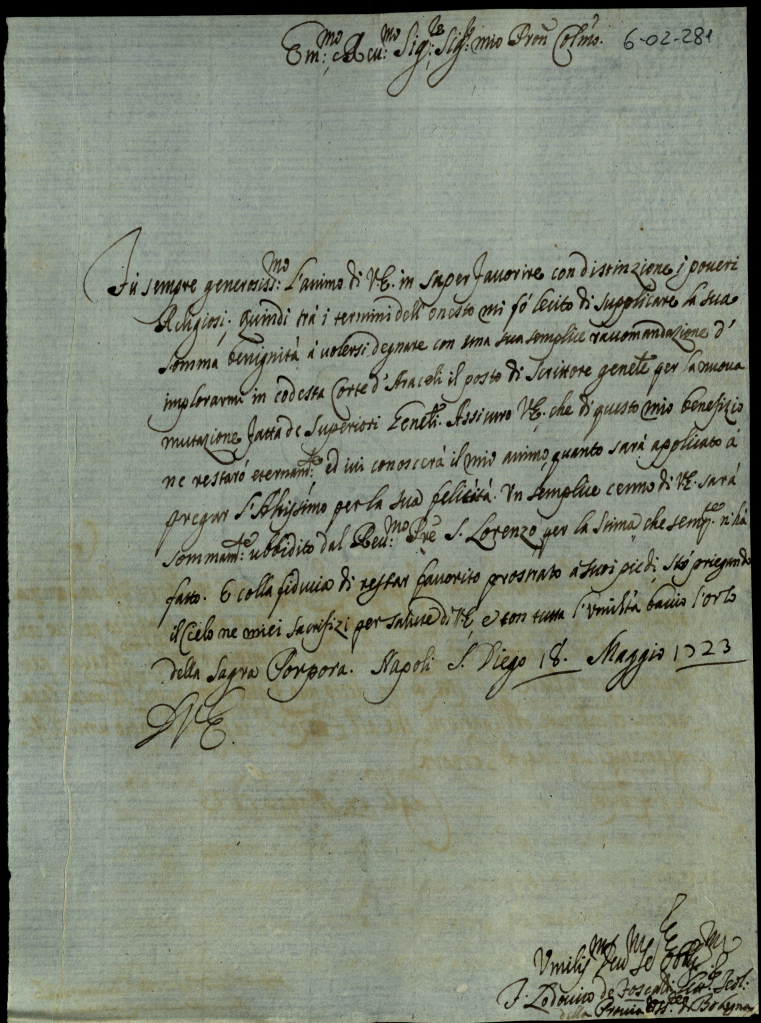 Em:mo e Reu:mo Sig:re Sig:re mio Pron Colmo. 6-02-281
Fù sempre generosiss:mo l'animo di V.E. in saper favorire con distinzione i poueri
Religiosi. Quindi trà i termini dell'onesto mi fò lecito di supplicare la sua
somma benignità à volersi degnare con una sua semplice raccomandazione d'
implorarmi in codesta Corte d'Araceli il posto di Scrittore genele per la nuova
mutazione fatta de Superiori Geneli. Assicuro V.E. che di questo mio benefizio
ne restarò eternamte ed ivi conoscerà il mio animo, quanto sarà applicato à
pregar l'Altissimo per la sua felicità. Un semplice cenno di V.E. sarà
sommamte ubbidito dal Reu:mo Pre S. Lorenzo, per la stima che sempre n'hà
fatto. E colla fiducia di restar favorito prostrato a suoi piedi stò priegando
il Cielo ne miei sacrifizi per salute di V.E. e con tutta l'umiltà bacio l'orlo
della Sagra Porpora. Napoli S. Diego 18. Maggio 1723
D V.E.
Umilis:mo Deu:mo Se
F. Lodovico de
della Provia di Bologna